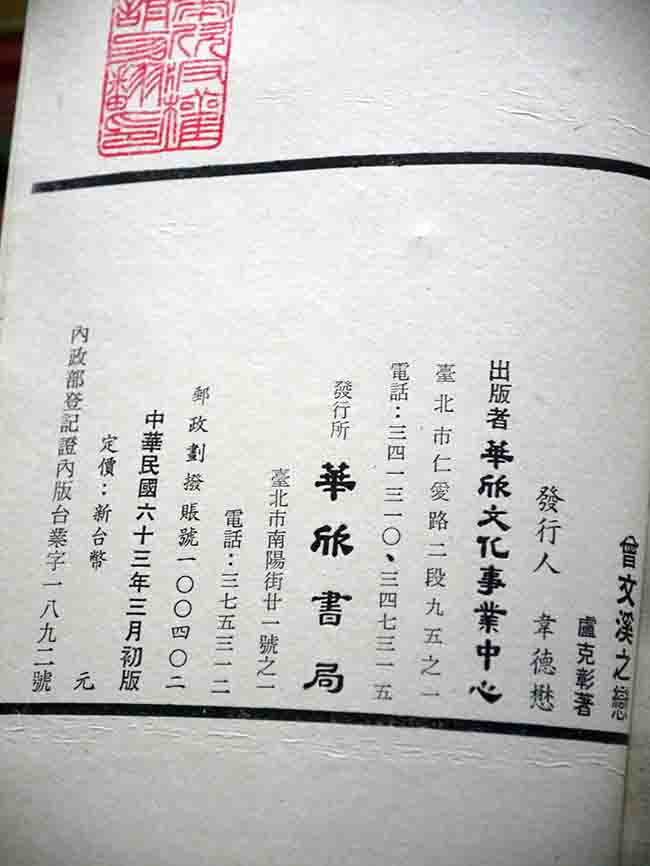 曾文溪之戀
盧克彰著
發行人 韋德懋
出版者 華欣文化事業中心
臺北市仁愛路二段九五之一
電話：三四一三一〇、三四七三一五
發行所 華欣書局
臺北市南陽街廿一號之一
電話：三七五三一二
郵政劃撥賬號一〇〇四〇二
中華民國六十三年三月初版
定價：新台幣 元
內政部登記證內版台業字一八九二號